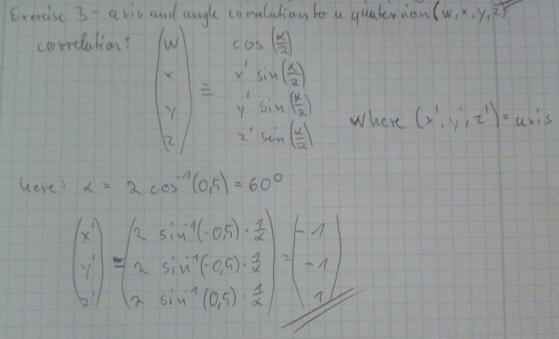 Exercise 3 - axis and angle correlation to a quaternion (w, x, y, z)
correlation: (w x y z) ≅ cos(α/2)
x' sin(α/2)
y' sin(α/2)
z' sin(α/2)
where (x', y', z') = axis
here: α = 2 cos⁻¹(0,5) = 60°
(x' y' z') = (2 sin⁻¹(-0,5) · 1/α = (-1
2 sin⁻¹(-0,5) · 1/α -1
2 sin⁻¹(0,5) · 1/α) 1)